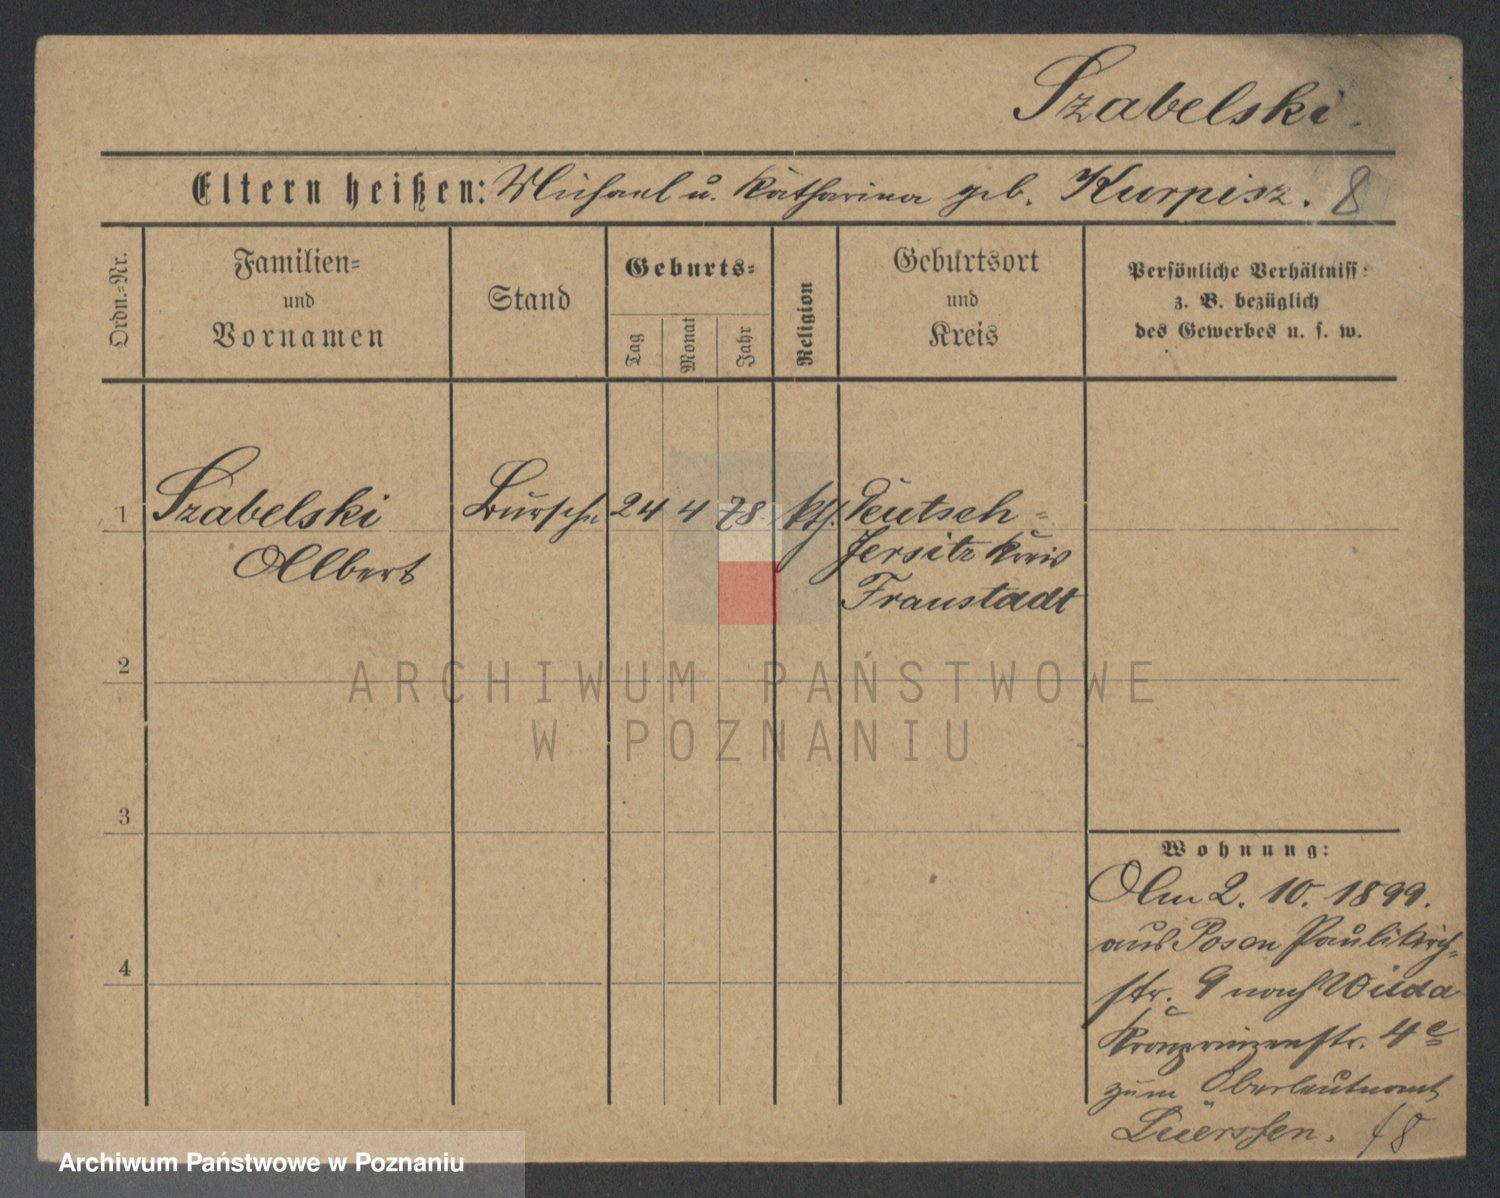 Szabelski.
Eltern heißen: Michael u. Katharina geb. Kurpisz. 8
Ordn.-Nr.
Familien-
und
Vornamen
Stand
Geburts-
Tag
Monat
Jahr
Religion
Geburtsort
und
Kreis
Persönliche Verhältniss:
z. B. bezüglich
des Gewerbes u. s. w.
1 Szabelski Bursche 24 4 78. kth. Deutsch-
Albert
Jersitz Kreis
Fraustadt
2
ARCHIWUM PAŃSTWOWE
W POZNANIU
3
Wohnung:
Am 2. 10. 1899.
aus Posen Paulikirch-
str. 9 nach Wilda
Kronprinzenstr. 4c
zum Oberleutnant
4
Archiwum Państwowe w Poznaniu